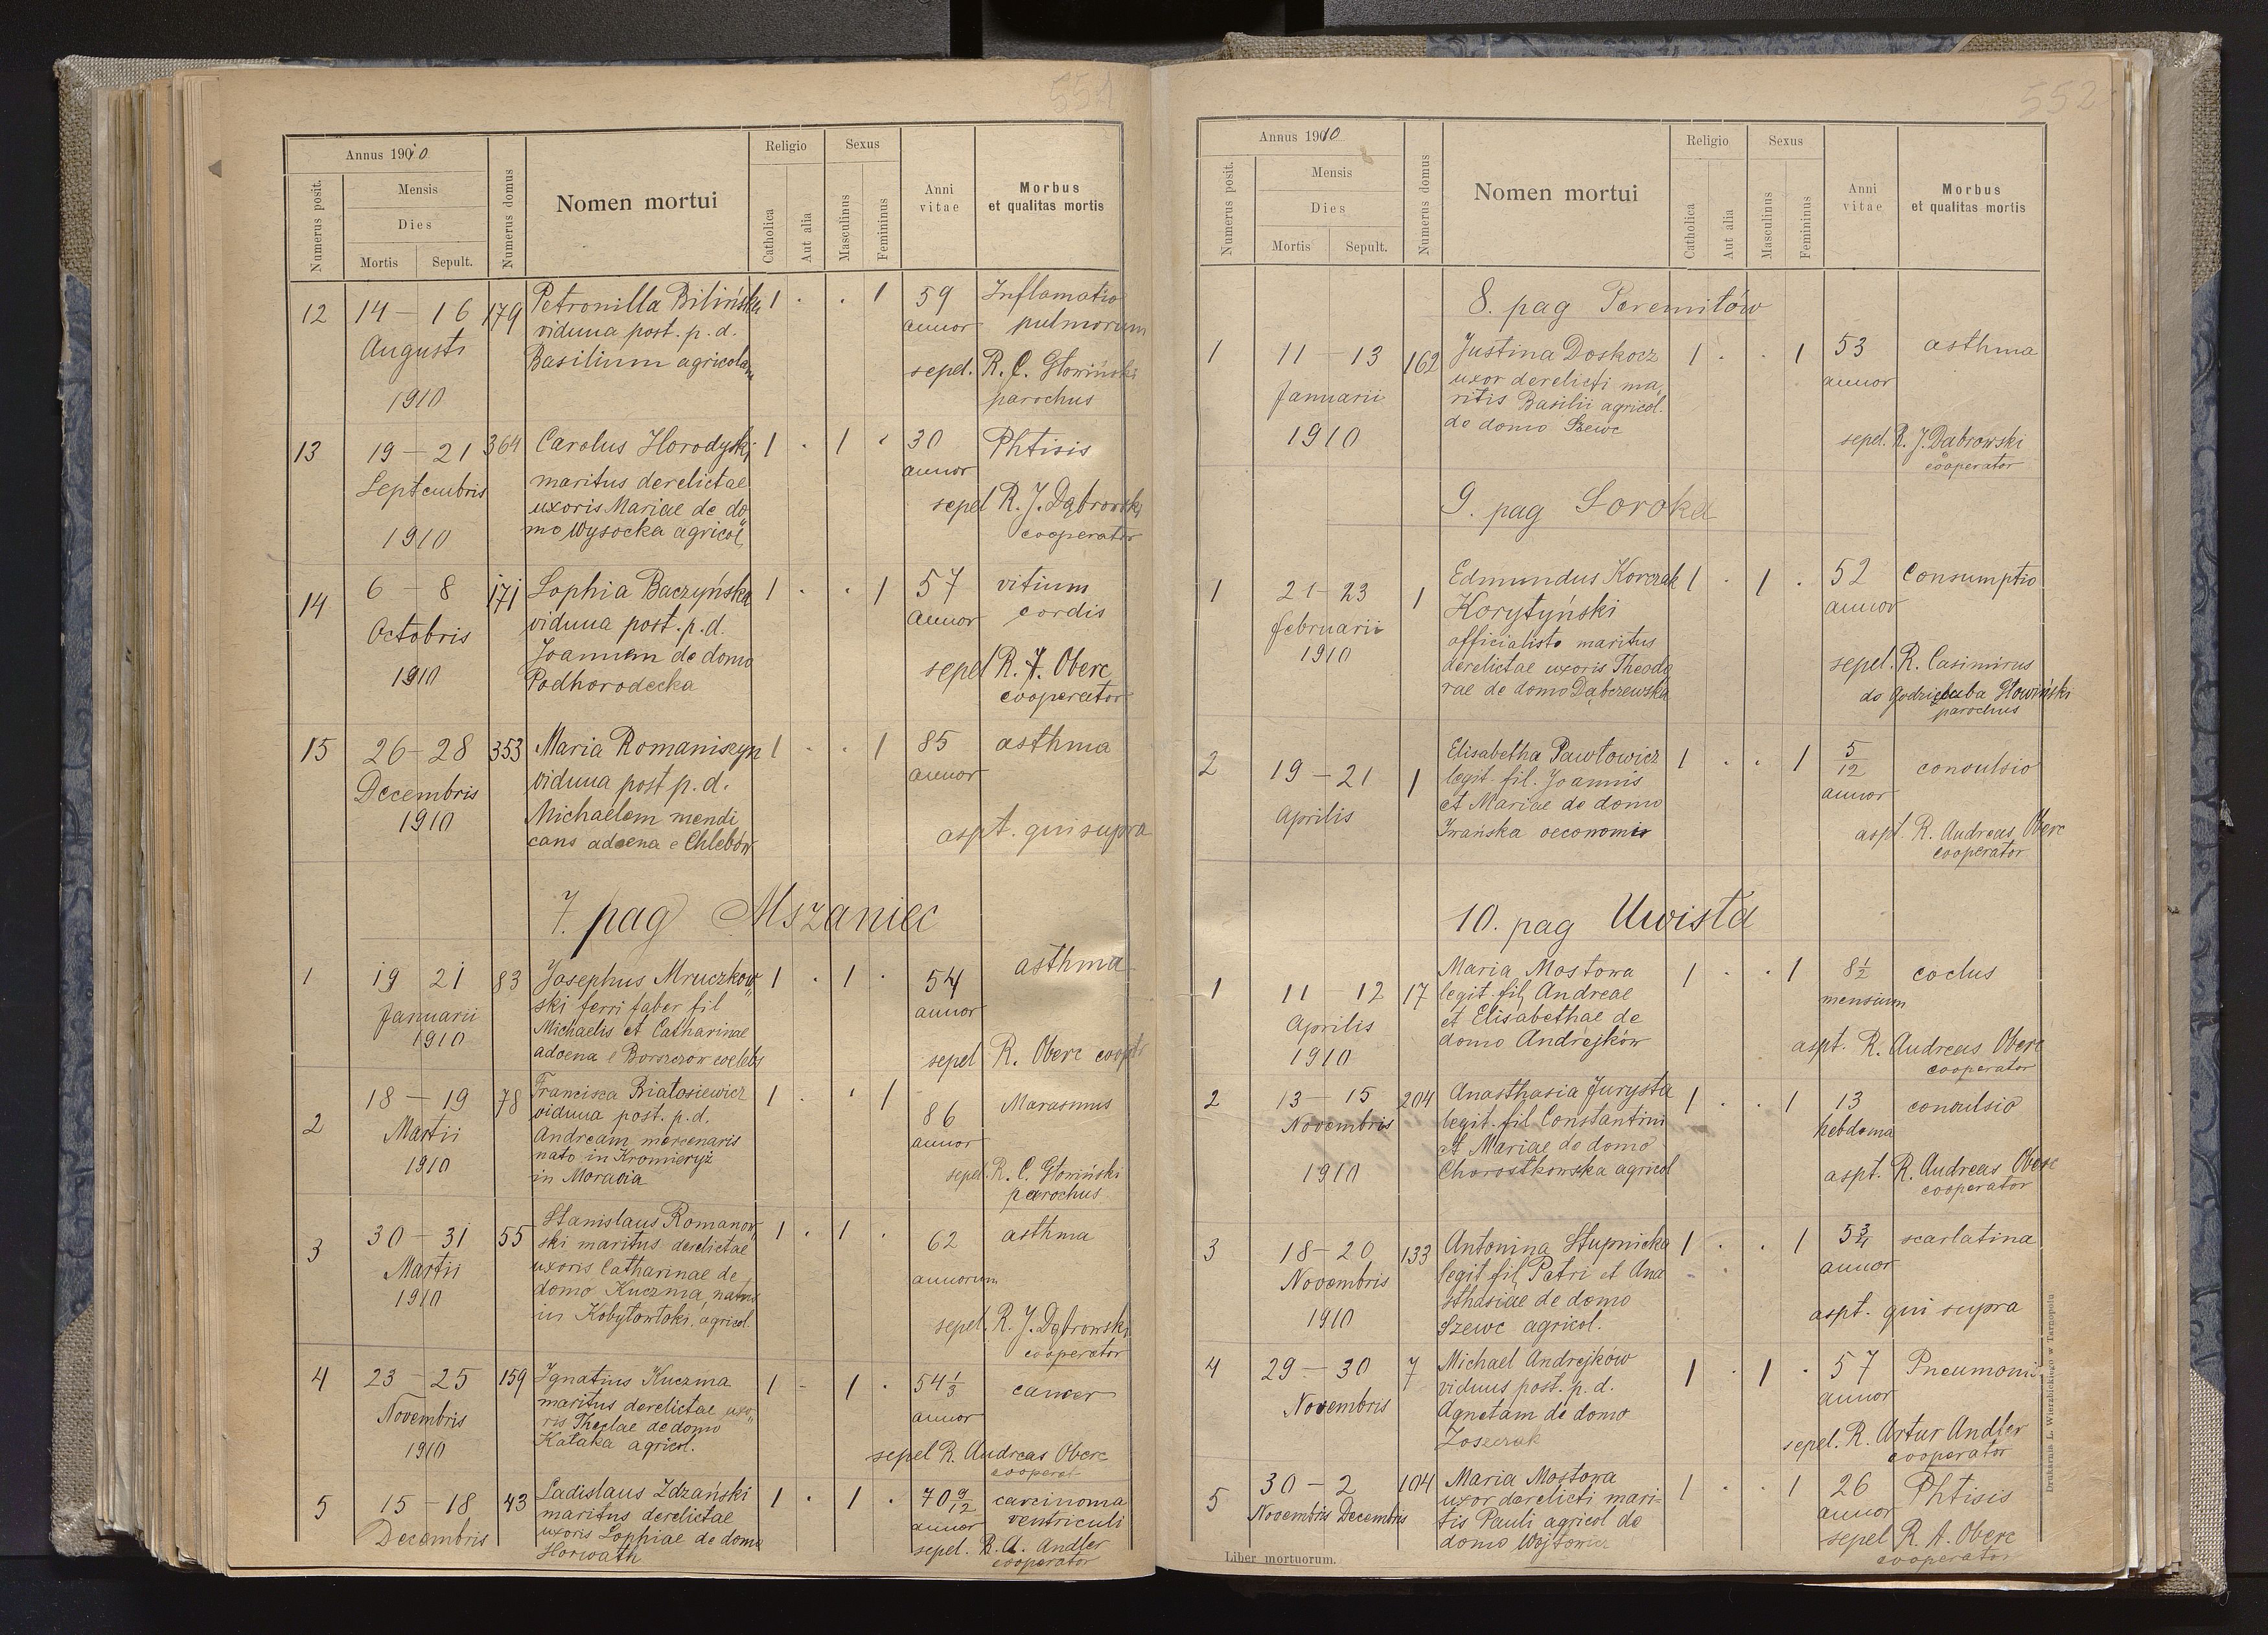 551
Annus 1910
Numerus posit.
Mensis
Dies
Mortis Sepult.
Numerus domus
Nomen mortui
Religio
Catholica
Aut alia
Sexus
Masculinus
Femininus
Anni vitae
Morbus
et qualitas mortis
12 14 – 16 179 Petronilla Bilińska 1 . . 1 59 Inflamatio
Augusti vidua post. p. d. annor pulmorum
Basilium agricolam sepel. R. C. Głowiński
1910 parochus
13 19 – 21 364 Carolus Horodyski 1 . 1 . 30 Phtisis
Septembris maritus derelictae annor
uxoris Mariae de do sepel R. J. Dąbrowski
1910 mo Wysocka agricol, cooperator
14 6 – 8 171 Sophia Baczyńska 1 . . 1 57 vitium
Octobris vidua post. p. d. annor cordis
Joannem de domo sepel R. A. Oberc
1910 Podhorodecka cooperator
15 26 – 28 353 Maria Romaniszyn 1 . . 1 85 asthma
Decembris vidua post p. d. annor
1910 Michaelem mendi aspt. qui supra
cans advena e Chlebów
7. pag Mszaniec
1 19 21 83 Josephus Mruczkow 1 . 1 . 54 asthma
Januarii ski ferri faber fil annor
1910 Michaelis et Catharinae
advena e Borszczow coelebs sepel R. Oberc coopt
2 18 – 19 78 Francisca Białosiewicz 1 . . 1 86 Marasmus
Martii vidua post. p. d. annor
1910 Andream mercenaris
nato in Kromieryż sepel. R. C. Głowiński
in Moravia parochus
3 30 – 31 55 Stanislaus Romanow 1 . 1 . 62 asthma
Martii ski maritus derelictae annorum
1910 uxoris Catharinae de
domo Kuczma, natus sepel. R. J. Dąbrowski
in Kobyłowłoki. agricol. cooperator
4 23 – 25 159 Ignatius Kuczma 1 - 1 . 54 1/3 cancer
Novembris maritus derelictae uxo annor
1910 ris Theclae de domo
Kataka agricol. sepel R. Andreas Oberc
cooperat
5 15 – 18 43 Ladislaus Zdzański 1 . 1 . 70 9/12 carcinoma
Decembris maritus derelictae annor ventriculi
uxoris Sophiae de domo sepel. R. A. Andler
Horwath cooperator
552
Annus 1910
Numerus posit.
Mensis
Dies
Mortis Sepult.
Numerus domus
Nomen mortui
Religio
Catholica
Aut alia
Sexus
Masculinus
Femininus
Anni vitae
Morbus
et qualitas mortis
8. pag Peremiłów
1 11 – 13 162 Justina Doskocz 1 . . 1 53 asthma
Januarii uxor derelicti ma, annor
1910 ritis Basilii agricol.
de domo Szewc sepel. R. J. Dąbrowski
cooperator
9. pag Soroka
1 21 – 23 1 Edmundus Korczak 1 . 1 . 52 Consumptio
februarii Korytyński annor
1910 officialista maritus
derelictae uxoris Theodo sepel. R. Casimirus
rae de domo Dąbczewska de Godziemba Głowiński
parochus
2 19 – 21 1 Elisabetha Pawłowicz 1 . . 1 5/12 convulsio
Aprilis legit. fil. Joannis annor
et Mariae de domo
Irańska oeconomis aspt. R. Andreas Oberc
cooperator
10. pag Uwisła
1 11 – 12 17 Maria Mostowa 1 . . 1 8 1/2 coclus
Aprilis legit. fil, Andreae mensium
1910 et Elisabethae de
domo Andrejków aspt. R. Andreas Oberc
cooperator
2 13 – 15 204 Anasthasia Jurysta 1 . . 1 13 convulsio
Novembris legit. fil Constantini hebdoma
1910 et Mariae de domo
Chorostkowska agricol aspt. R. Andreas Oberc
cooperator
3 18 – 20 133 Antonina Słupnicka 1 . . 1 5 3/4 scarlatina
Novembris legit fil, Petri et Ana annor
1910 sthasiae de domo
Szewc agricol. aspt. qui supra
4 29 – 30 7 Michael Andrejków 1 . 1 . 57 Pneumoni
Novembris viduus post. p. d. annor
Agnetam de domo
sepel. R. Artur Andler
cooperator
5 30 – 2 104 Maria Mostowa 1 . . 1 26 Phtisis
Novembris Decembris uxor derelicti mari- annor
tis Pauli agricol de sepel R. A. Oberc
domo Wojtowicz cooperator
Liber mortuorum.
Drukarnia L. Wierzbickiego w Tarnopolu